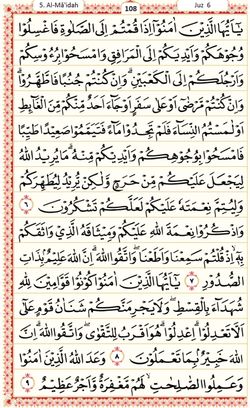 5. Al-Mâ'idah 108 Juz 6
يٰٓاَيُّهَا الَّذِيْنَ اٰمَنُوْٓا اِذَا قُمْتُمْ اِلَى الصَّلٰوةِ فَاغْسِلُوْا
وُجُوْهَكُمْ وَاَيْدِيَكُمْ اِلَى الْمَرَافِقِ وَامْسَحُوْا بِرُءُوْسِكُمْ
وَاَرْجُلَكُمْ اِلَى الْكَعْبَيْنِ ۗ وَاِنْ كُنْتُمْ جُنُبًا فَاطَّهَّرُوْا ۗ
وَاِنْ كُنْتُمْ مَّرْضٰٓى اَوْ عَلٰى سَفَرٍ اَوْ جَآءَ اَحَدٌ مِّنْكُمْ مِّنَ الْغَآئِطِ
اَوْ لٰمَسْتُمُ النِّسَآءَ فَلَمْ تَجِدُوْا مَآءً فَتَيَمَّمُوْا صَعِيْدًا طَيِّبًا
فَامْسَحُوْا بِوُجُوْهِكُمْ وَاَيْدِيْكُمْ مِّنْهُ ۗ مَا يُرِيْدُ اللّٰهُ
لِيَجْعَلَ عَلَيْكُمْ مِّنْ حَرَجٍ وَّلٰكِنْ يُّرِيْدُ لِيُطَهِّرَكُمْ
وَلِيُتِمَّ نِعْمَتَهٗ عَلَيْكُمْ لَعَلَّكُمْ تَشْكُرُوْنَ ٦
وَاذْكُرُوْا نِعْمَةَ اللّٰهِ عَلَيْكُمْ وَمِيْثَاقَهُ الَّذِيْ وَاثَقَكُمْ
بِهٖٓ ۙ اِذْ قُلْتُمْ سَمِعْنَا وَاَطَعْنَا ۖ وَاتَّقُوا اللّٰهَ ۗ اِنَّ اللّٰهَ عَلِيْمٌ ۢبِذَاتِ
الصُّدُوْرِ ٧ يٰٓاَيُّهَا الَّذِيْنَ اٰمَنُوْا كُوْنُوْا قَوَّامِيْنَ لِلّٰهِ
شُهَدَآءَ بِالْقِسْطِ ۖ وَلَا يَجْرِمَنَّكُمْ شَنَاٰنُ قَوْمٍ عَلٰٓى
اَلَّا تَعْدِلُوْا ۗ اِعْدِلُوْا ۗ هُوَ اَقْرَبُ لِلتَّقْوٰى ۖ وَاتَّقُوا اللّٰهَ ۗ اِنَّ
اللّٰهَ خَبِيْرٌ ۢبِمَا تَعْمَلُوْنَ ٨ وَعَدَ اللّٰهُ الَّذِيْنَ اٰمَنُوْا
وَعَمِلُوا الصّٰلِحٰتِ ۙ لَهُمْ مَّغْفِرَةٌ وَّاَجْرٌ عَظِيْمٌ ٩